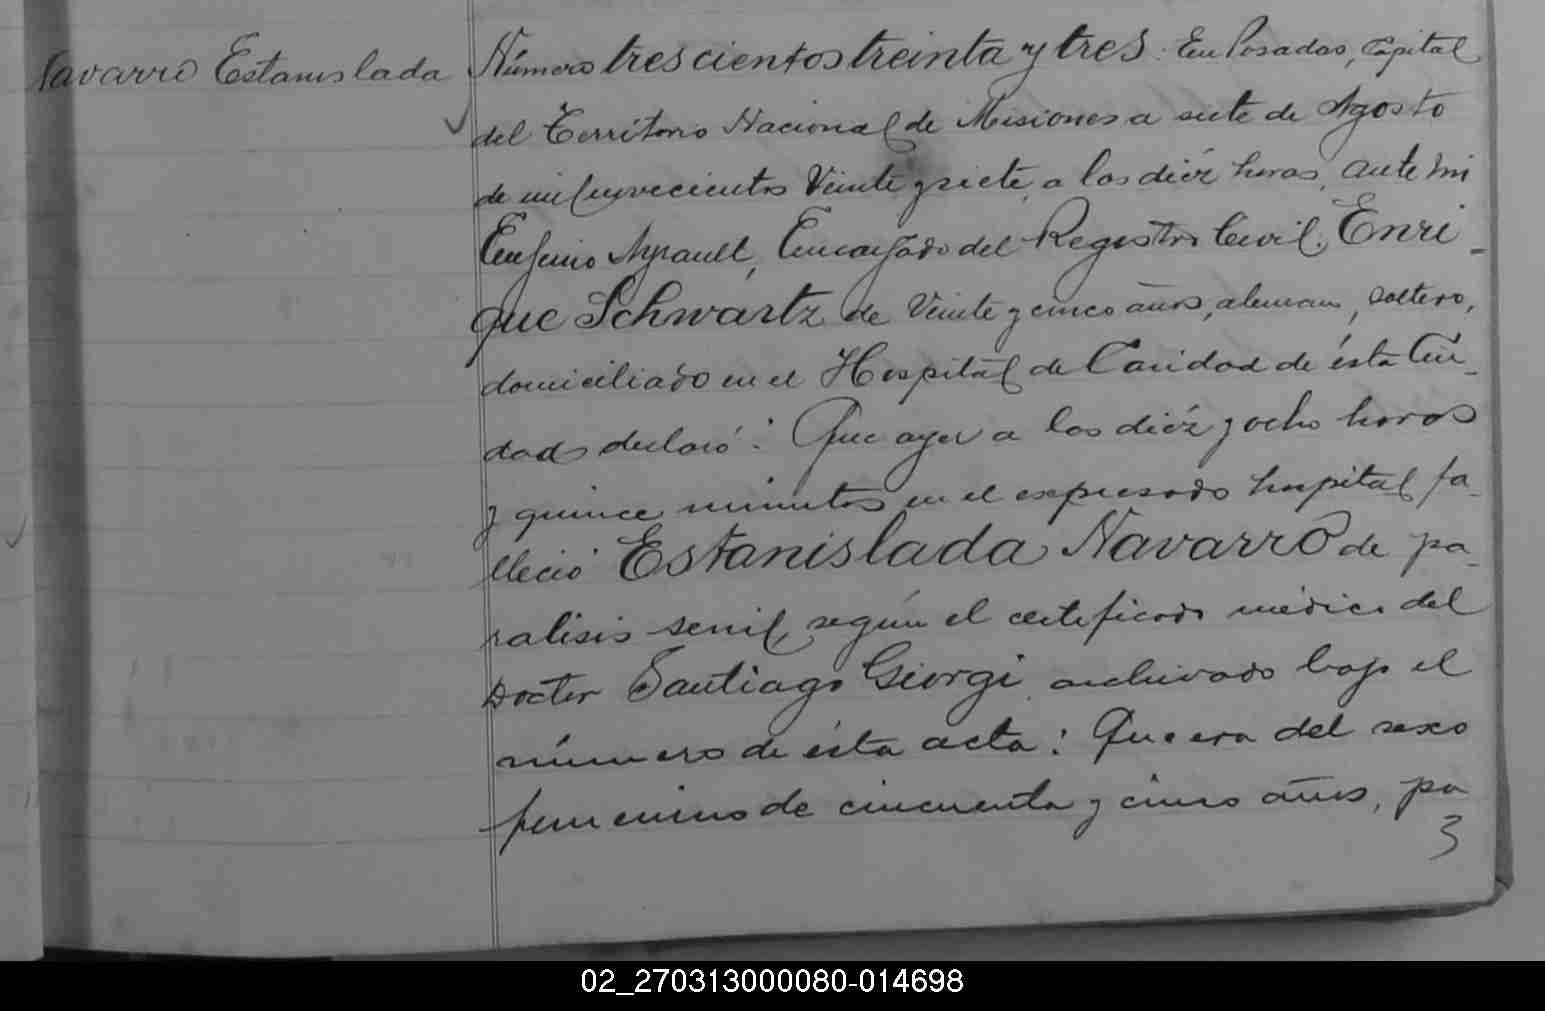 Navarro Estanislada
Número trescientos treinta y tres. En Posadas, Capital
del Territorio Nacional de Misiones a siete de Agosto
de mil novecientos Veinte y siete, a las diéz horas, ante mi
Eugenio Ayrault, Encargado del Registro Civil, Enri-
que Schwartz de Veinte y cinco años, aleman, soltero,
domiciliado en el Hospital de Caridad de ésta Ciu-
dad, declaró: Que ayer a las diéz y ocho horas
y quince minutos en el expresado hospital fa-
lleció Estanislada Navarro de pa-
ralisis senil, según el certificado médico del
Doctor Santiago Giorgi archivado bajo el
número de ésta acta: Que era del sexo
femenino de cincuenta y cinco años, pa
3
02_270313000080-014698